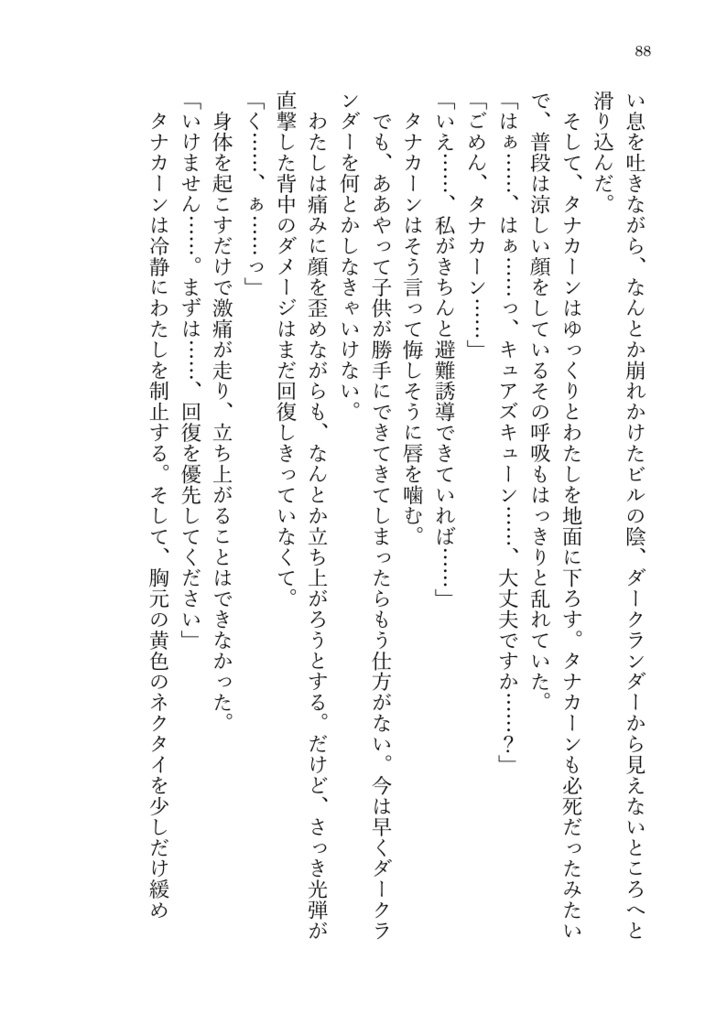 88
い息を吐きながら、なんとか崩れかけたビルの陰、ダークランダーから見えないところへと
滑り込んだ。
そして、タナカーンはゆっくりとわたしを地面に下ろす。タナカーンも必死だったみたい
で、普段は涼しい顔をしているその呼吸もはっきりと乱れていた。
「はぁ……、はぁ……っ、キュアズキューン……、大丈夫ですか……?」
「ごめん、タナカーン……」
「いえ……、私がきちんと避難誘導できていれば……」
タナカーンはそう言って悔しそうに唇を噛む。
でも、ああやって子供が勝手にできてきてしまったらもう仕方がない。今は早くダークラ
ンダーを何とかしなきゃいけない。
わたしは痛みに顔を歪めながらも、なんとか立ち上がろうとする。だけど、さっき光弾が
直撃した背中のダメージはまだ回復しきっていなくて。
「く……、ぁ……っ」
身体を起こすだけで激痛が走り、立ち上がることはできなかった。
「いけません……。まずは……、回復を優先してください」
タナカーンは冷静にわたしを制止する。そして、胸元の黄色のネクタイを少しだけ緩め